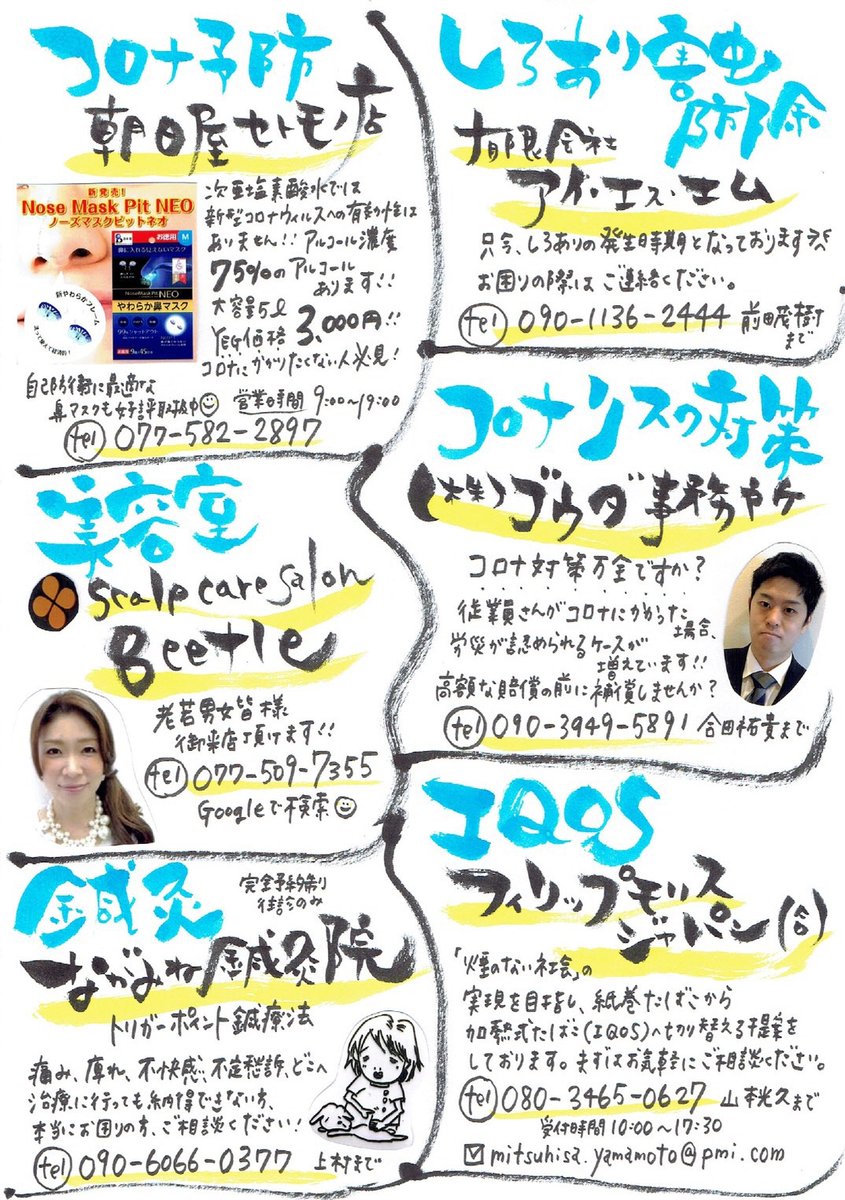 コロナ予防
朝日屋セトモノ店
新発売!
Nose Mask Pit NEO
ノーズマスクピットネオ
お徳用 M
鼻に入れる見えないマスク
NoseMask Pit NEO
やわらか鼻マスク
新やわらかフレーム
次亜塩素酸水では
新型コロナウィルスへの有効性は
ありません!! アルコール濃度
75%のアルコール
あります!!
大容量5ℓ
YEG価格 3,000円!!
コロナにかかりたくない人必見!
自己防衛に最適な
鼻マスクも好評取扱中
営業時間 9:00~19:00
tel 077-582-2897
しろあり害虫
防除
有限会社
アイ・エス・エム
只今、しろありの発生時期となっております
お困りの際はご連絡ください。
tel 090-1136-2444 前田茂樹
まで
美容室
scalp care salon
Beetle
老若男女皆様
御来店頂けます!!
tel 077-509-7355
Googleで検索
コロナリスク対策
(株)ゴウダ事務所
コロナ対策万全ですか?
従業員さんがコロナにかかった場合、
労災が認められるケースが
増えています!!
高額な賠償の前に補償しませんか?
tel 090-3949-5891 合田祐貴まで
鍼灸
完全予約制
往診のみ
ながみね鍼灸院
トリガーポイント鍼療法
痛み、痺れ、不快感、不定愁訴、どこへ
治療に行っても納得できない方、
本当にお困りの方、ご相談ください!
tel 090-6066-0377 上村まで
IQOS
フィリップモリス
ジャパン(合)
「煙のない社会」の
実現を目指し、紙巻たばこから
加熱式たばこ(IQOS)へ切り替える提案を
しております。まずはお気軽にご相談ください。
tel 080-3465-0627 山本光久まで
受付時間 10:00~17:30
mitsuhisa.yamamoto@pmi.com